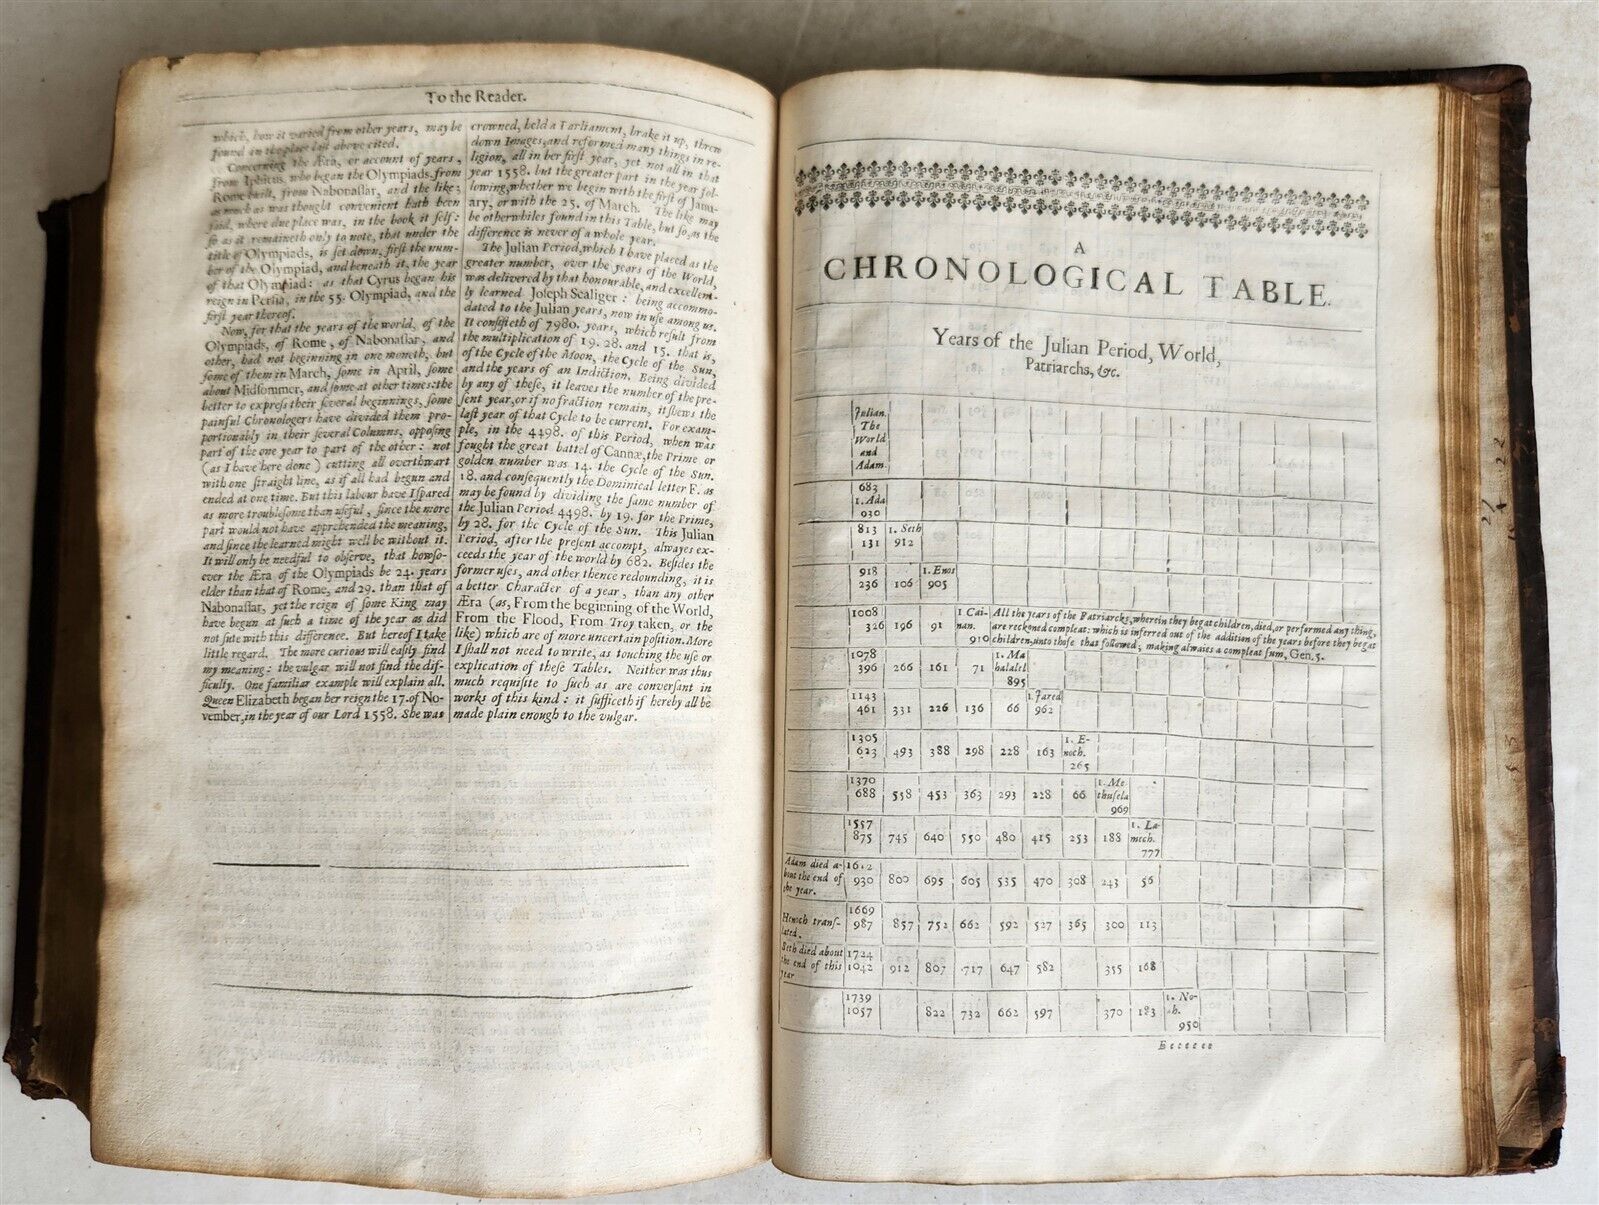 To the Reader.
which, how it varied from other years, may be
found in the place last above cited.
Concerning the Æra, or account of years,
from Iphitus, who began the Olympiads, from
Rome built, from Nabonassar, and the like;
as much as was thought convenient hath been
said, where due place was, in the book it self:
so as it remaineth only to note, that under the
title of Olympiads, is set down, first the num-
ber of the Olympiad, and beneath it, the year
of that Olympiad: as that Cyrus began his
reign in Persia, in the 55. Olympiad, and the
first year thereof.
Now, for that the years of the world, of the
Olympiads, of Rome, of Nabonassar, and
other, had not beginning in one moneth, but
some of them in March, some in April, some
about Midsommer, and some at other times: the
better to express their several beginnings, some
painful Chronologers have divided them pro-
portionably in their several Columns, opposing
part of the one year to part of the other: not
(as I have here done) cutting all overthwart
with one straight line, as if all had begun and
ended at one time. But this labour have I spared
as more troublesome than useful, since the more
part would not have apprehended the meaning,
and since the learned might well be without it.
It will only be needful to observe, that howso-
ever the Æra of the Olympiads be 24. years
elder than that of Rome, and 29. than that of
Nabonassar, yet the reign of some King may
have begun at such a time of the year as did
not sute with this difference. But hereof I take
little regard. The more curious will easily find
my meaning: the vulgar will not find the dif-
ficulty. One familiar example will explain all.
Queen Elizabeth began her reign the 17. of No-
vember, in the year of our Lord 1558. She was
crowned, held a Parliament, brake it up, threw
down Images, and reformed many things in re-
ligion, all in her first year, yet not all in that
year 1558. but the greater part in the year fol-
lowing, whether we begin with the first of Janu-
ary, or with the 25. of March. The like may
be otherwhiles found in this Table, but so, as the
difference is never of a whole year.
The Julian Period, which I have placed as the
greater number, over the years of the World,
was delivered by that honourable, and excellent-
ly learned Joseph Scaliger: being accommo-
dated to the Julian years, now in use among us.
It consisteth of 7980. years, which result from
the multiplication of 19. 28. and 15. that is,
of the Cycle of the Moon, the Cycle of the Sun,
and the years of an Indiction. Being divided
by any of these, it leaves the number of the pre-
sent year, or if no fraction remain, it shews the
last year of that Cycle to be current. For exam-
ple, in the 4498. of this Period, when was
fought the great battel of Cannæ, the Prime or
golden number was 14. the Cycle of the Sun.
18. and consequently the Dominical letter F. as
may be found by dividing the same number of
the Julian Period 4498. by 19. for the Prime,
by 28. for the Cycle of the Sun. This Julian
Period, after the present accompt, alwayes ex-
ceeds the year of the world by 682. Besides the
former uses, and other thence redounding, it is
a better Character of a year, than any other
Æra (as, From the beginning of the World,
From the Flood, From Troy taken, or the
like) which are of more uncertain position. More
I shall not need to write, as touching the use or
explication of these Tables. Neither was thus
much requisite to such as are conversant in
works of this kind: it sufficeth if hereby all be
made plain enough to the vulgar.
A
CHRONOLOGICAL TABLE.
Years of the Julian Period, World,
Patriarchs, &c.
Julian.
The
World
and
Adam.
683
1. Ada
930
813 1. Seth
131 912
918 1. Enos
236 106 905
1008 1 Cai- All the years of the Patriarchs, wherein they begat children, died, or performed any thing,
326 196 91 nan. are reckoned compleat: which is inferred out of the addition of the years before they begat
910 children, unto those that followed; making alwaies a compleat sum, Gen. 5.
1078 1. Ma
396 266 161 71 halalel
895
1143 1. Jared
461 331 226 136 66 962
1305 1. E-
623 493 388 298 228 163 noch.
265
1370 1. Me
688 558 453 363 293 228 66 thusela
969
1557 1. La-
875 745 640 550 480 415 253 188 mech.
777
Adam died a- 1612
bout the end of 930 800 695 605 535 470 308 243 56
the year.
1669
Henoch trans- 987 857 752 662 592 527 365 300 113
lated.
Seth died about 1724
the end of this 1042 912 807 717 647 582 355 168
year
1739 1. No-
1057 822 732 662 597 370 183 ah.
950
Eeeeeee